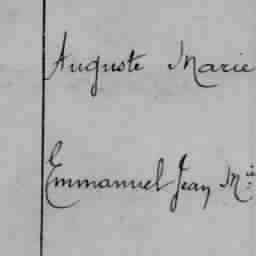 Auguste Marie
Emmanuel Jean M.ie